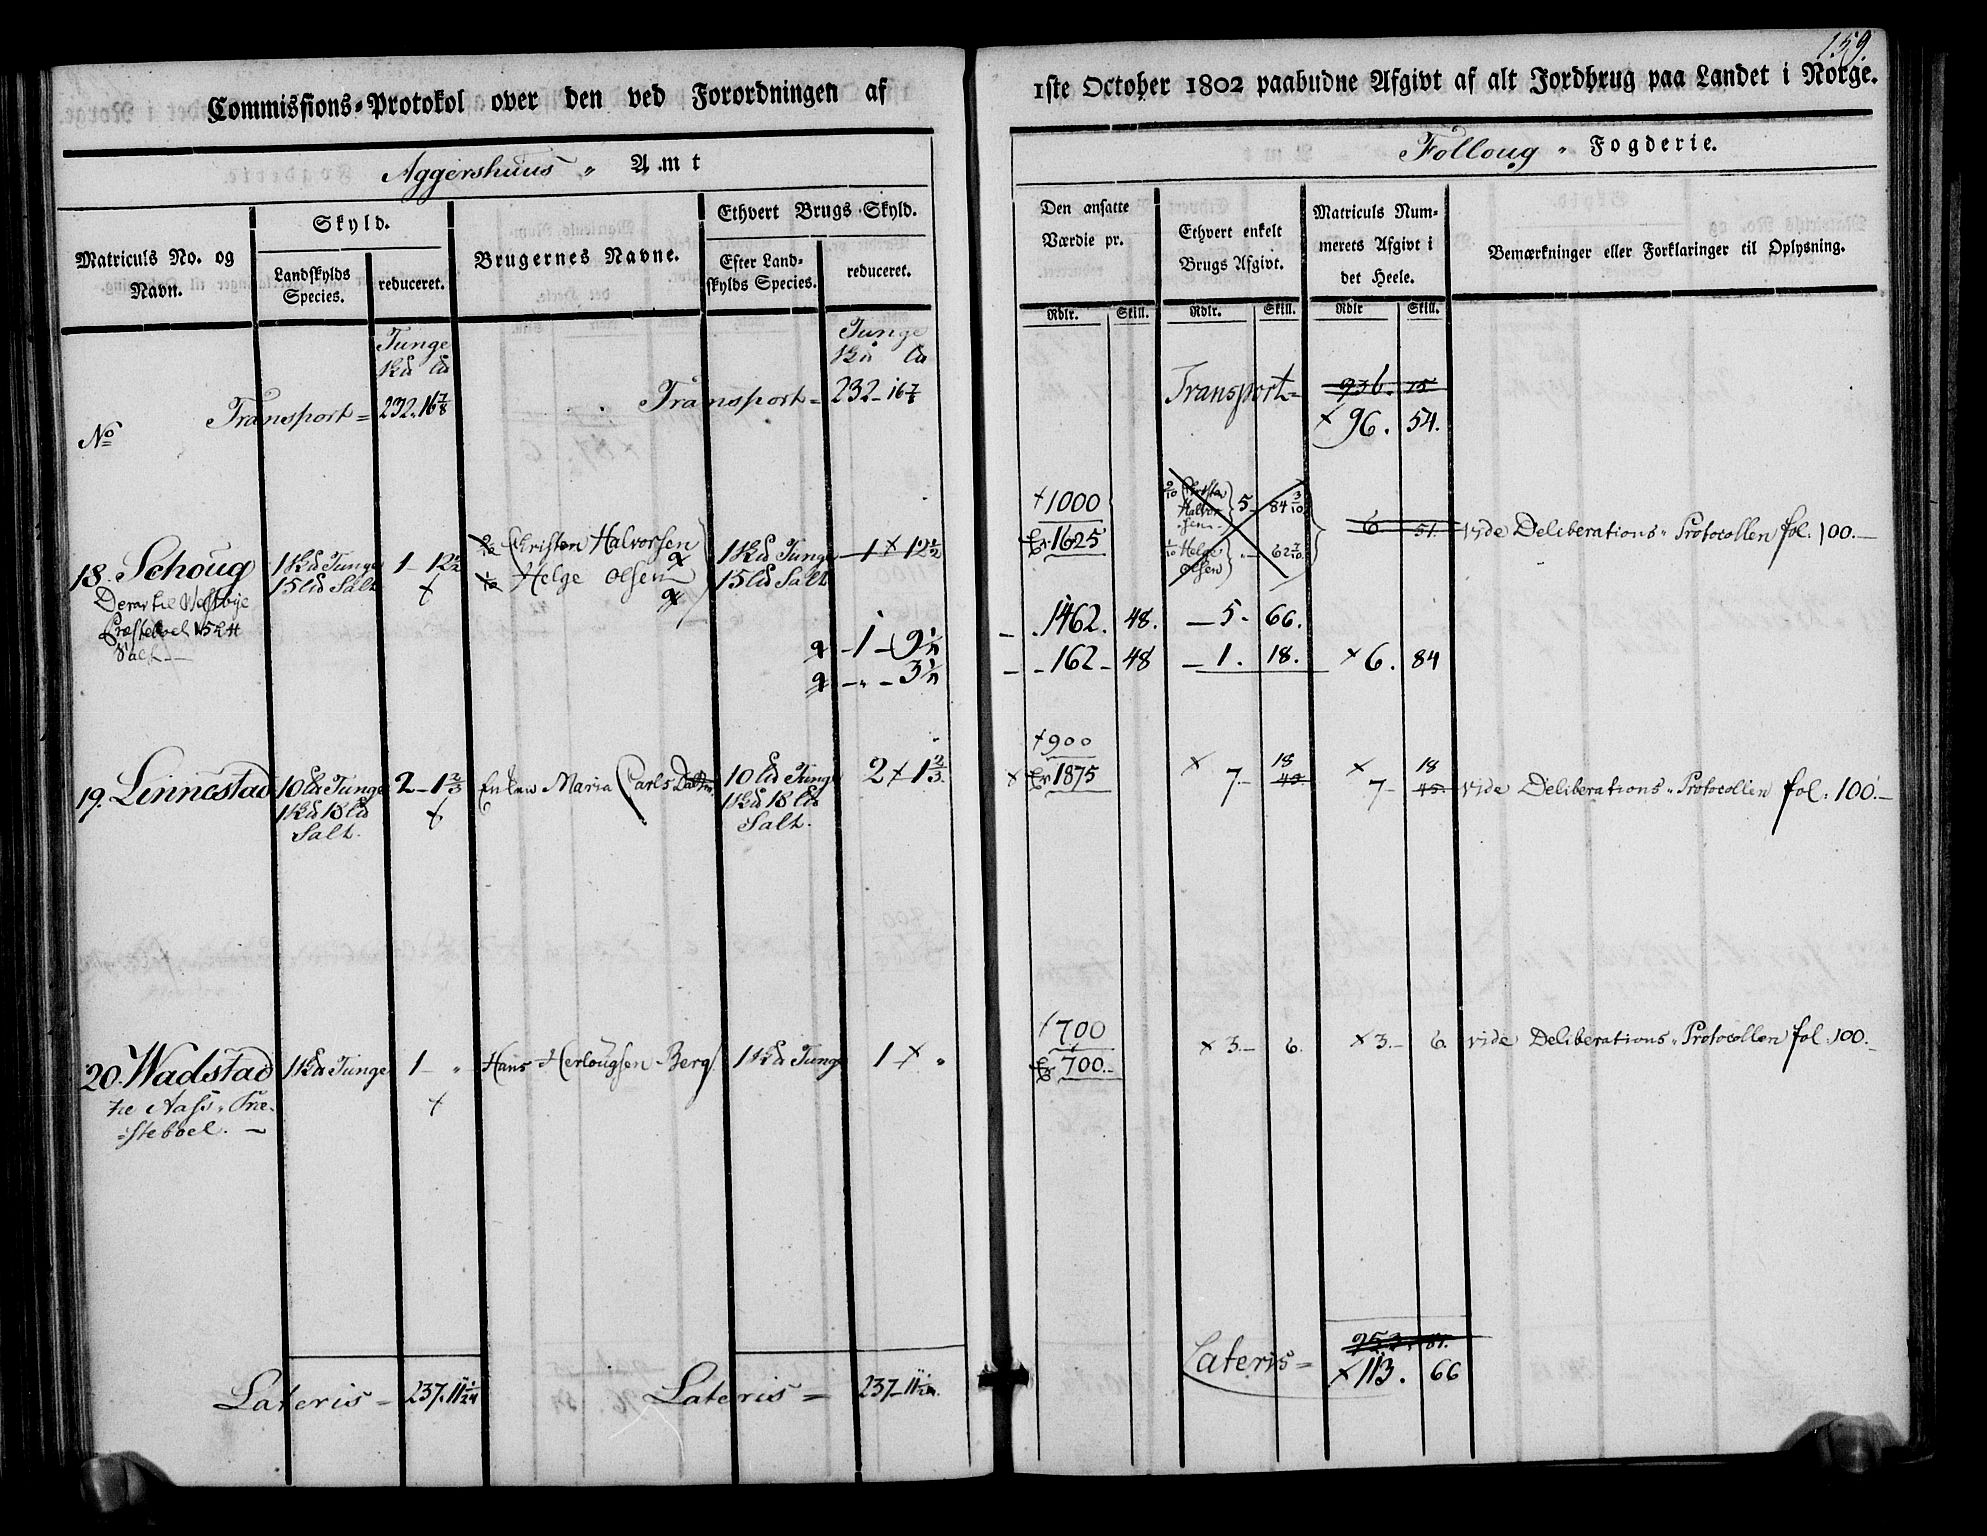 159.
Commissions-Protokol over den ved Forordningen af
1ste October 1802 paabudne Afgivt af alt Jordbrug paa Landet i Norge.
Aggershuus " Amt
Folloug " Fogderie.
Matriculs No. og Navn.
Skyld.
Landskylds Species.
reduceret.
Brugernes Navne.
Ethvert Brugs Skyld.
Efter Landskylds Species.
reduceret.
Den ansatte Værdie pr.
Ethvert enkelt Brugs Afgivt.
Matriculs Nummerets Afgivt i det Heele.
Bemærkninger eller Forklaringer til Oplysning.
Rdlr. Skill. Rdlr. Skill. Rdlr Skill.
Tunge
Tunge
Transport = 232. 16 7/8
Transport = 232 - 16 7/8
Transport = 936. 15
× 96. 54.
No
18. Schoug
1 Tunge
15 Salt
1 - 12 1/2
Christen Halvorsen
Helge Olsen
1 Tunge
15 Salt
1 × 12 1/2
+ 1000
1625
9/10 Christen Halvorsen 5 - 84 3/10
1/10 Helge Olsen " - 62 7/10
6 51.
vide Deliberations " Protocollen fol. 100. —
Præsteboel
Salt —
1 - 9
" - 3
1462. 48. — 5. 66.
162 - 48 — 1. 18. × 6. 84
19. Linnestad
10 Tunge
1 18
Salt.
2 - 1 2/3
Enken Maria Carls
10 Tunge
1 18
Salt.
2 × 1 2/3.
+ 900
× 1875
× 7 - 18
× 7 - 18
vide Deliberations " Protocollen fol. 100. —
20. Wadstad
til Aass " Præ-
steboel. —
1 Tunge
1 - "
Hans Herlougsen Berg
1 Tunge
1 × "
700
700. -
× 3. - 6.
× 3. - 6.
vide Deliberations " Protocollen fol. 100. —
Lateris = 237. 11 1/24
Lateris = 237 - 11 1/24.
Lateris =
× 113. 66